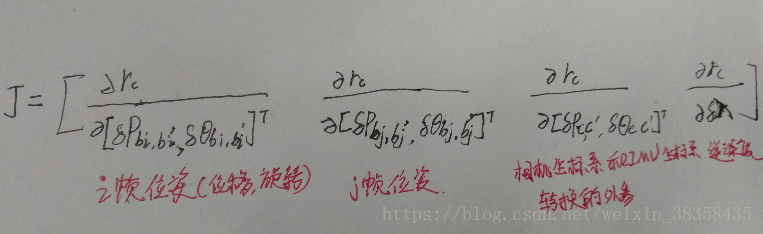 J = [ ∂r_c / ∂[δP_{b_i,b_i'}, δθ_{b_i,b_i'}]^T   ∂r_c / ∂[δP_{b_j,b_j'}, δθ_{b_j,b_j'}]^T   ∂r_c / ∂[δP_{c,c'}, δθ_{c,c'}]^T   ∂r_c / ∂δλ ]
i帧位姿(位移,旋转) j帧位姿. 相机坐标系和IMU坐标系
转换的外参
https://blog.csdn.net/weixin_38358435